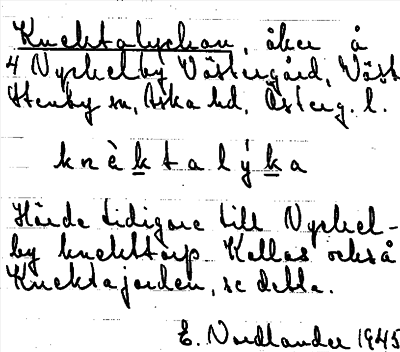 Knektalyckan, åker å
4 Nyckelby Västergård, Väst
Stenby sn, Aska hd, Österg. l.
knèktalýka
Hörde tidigare till Nyckel-
by knekttorp. Kallas också
Knektajorden, se detta.
E. Nordlander 1945